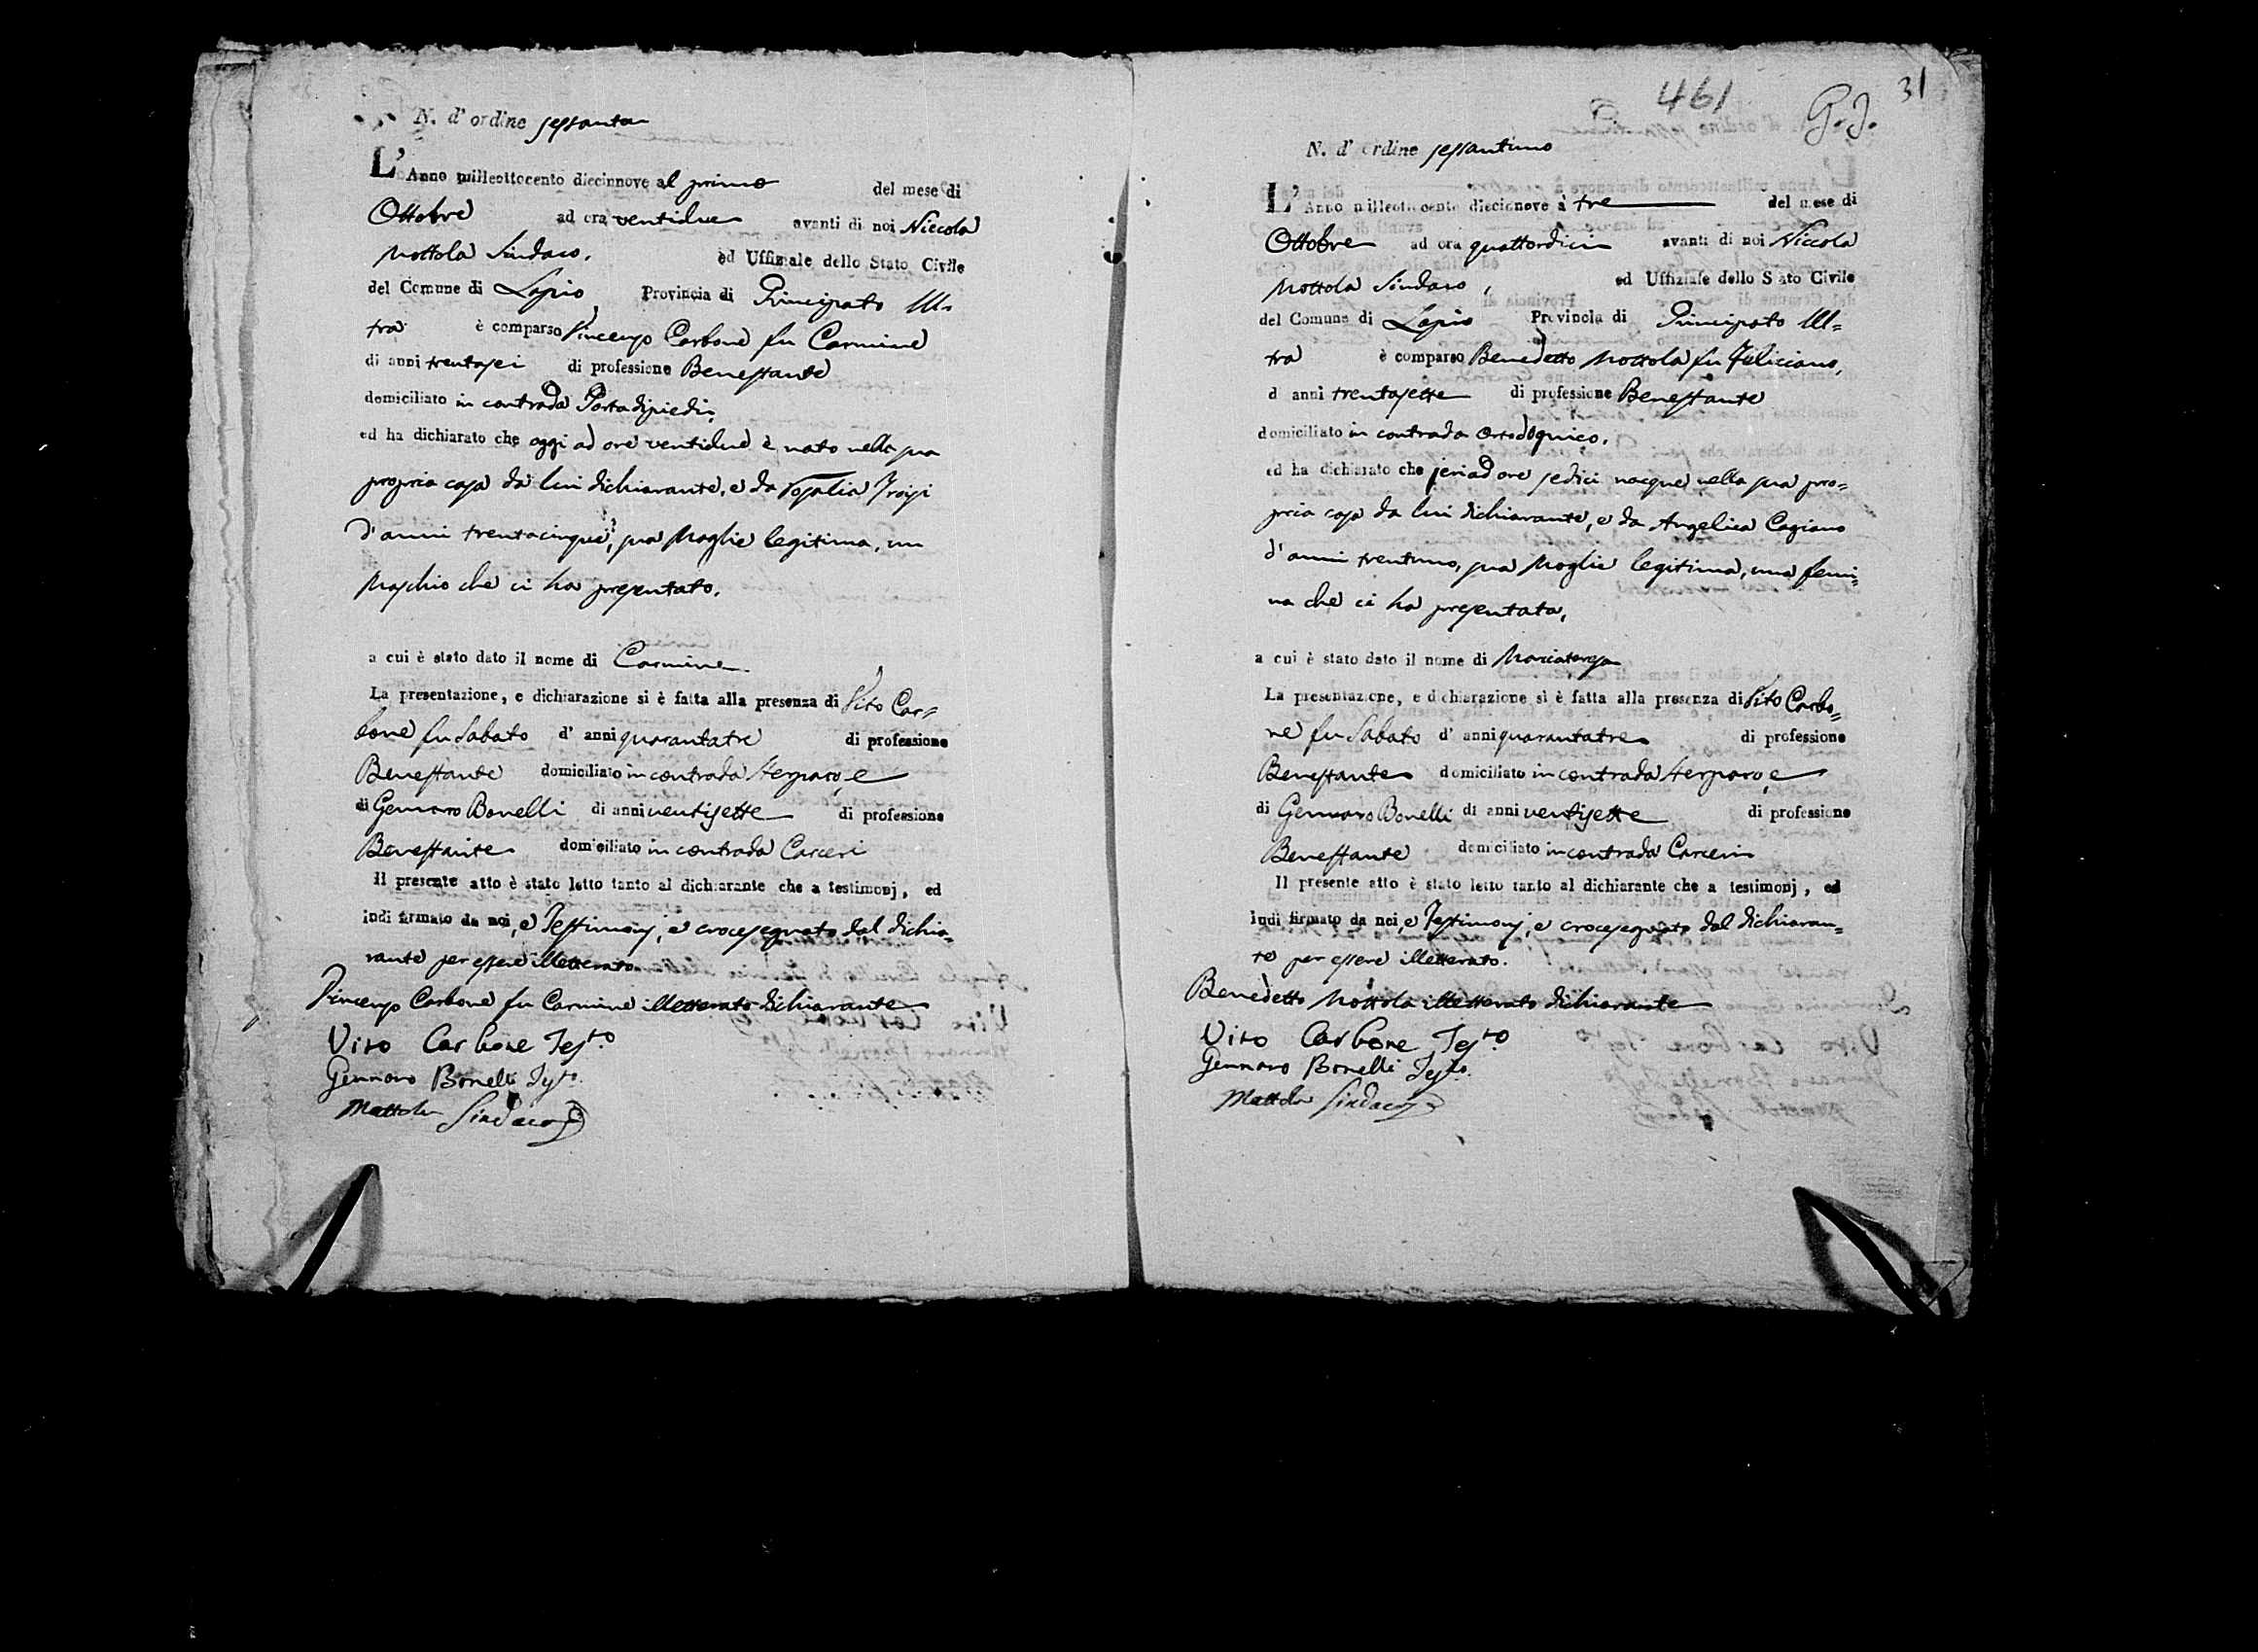 N. d' ordine sessanta
L' Anno milleottocento diecinnove al primo del mese di
Ottobre ad ora ventidue avanti di noi Niccola
Mottola Sindaco, ed Uffiziale dello Stato Civile
del Comune di Lapio Provincia di Principato Ul-
tra è comparso Vincenzo Carbone fu Carmine
di anni trentasei di professione Benestante
domiciliato in contrada Portadipiedi,
ed ha dichiarato che oggi ad ore ventidue è nato nella sua
propria casa da lui dichiarante, e da Rosalia Troisi
d'anni trentacinque, sua Moglie legitima, un
Maschio che ci ha presentato.
a cui è stato dato il nome di Carmine
La presentazione, e dichiarazione si è fatta alla presenza di Vito Car=
bone fu Sabato d' anni quarantatre di professione
Benestante domiciliato in contrada Sterparo, e
di Gennaro Bonelli di anni ventisette di professione
Benestante domiciliato in contrada Carceri
Il presente atto è stato letto tanto al dichiarante che a testimonj, ed
indi firmato da noi, e Testimonj, e crocesegnato dal dichia=
rante per essere illetterato.
Vincenzo Carbone fu Carmine illetterato dichiarante
Vito Carbone Testo
Gennaro Bonelli Testo
Mottola Sindaco
461
G.J.
31
N. d' ordine sessantuno
L' Anno milleottocento diecinnove à tre del mese di
Ottobre ad ora quattordici avanti di noi Niccola
Mottola Sindaco, ed Uffiziale dello Stato Civile
del Comune di Lapio Provincia di Principato Ul=
tra è comparso Benedetto Mottola fu Feliciano,
d anni trentasette di professione Benestante
domiciliato in contrada
ed ha dichiarato che jeri ad ore sedici nacque nella sua pro=
pria casa da lui dichiarante, e da Angelica Cagiano
d'anni trentuno, sua Moglie legitima, una femi=
na che ci ha presentata,
a cui è stato dato il nome di Mariateresa
La presentazione, e dichiarazione si è fatta alla presenza di Vito Carbo=
ne fu Sabato d' anni quarantatre di professione
Benestante domiciliato in contrada Sterparo, e
di Gennaro Bonelli di anni ventisette di professione
Benestante domiciliato in contrada Carceri
Il presente atto è stato letto tanto al dichiarante che a testimonj, ed
indi firmato da noi, e Testimonj, e crocesegnato dal dichiaran=
te per essere illetterato.
Benedetto Mottola illetterato dichiarante
Vito Carbone Testo
Gennaro Bonelli Testo
Mottola Sindaco